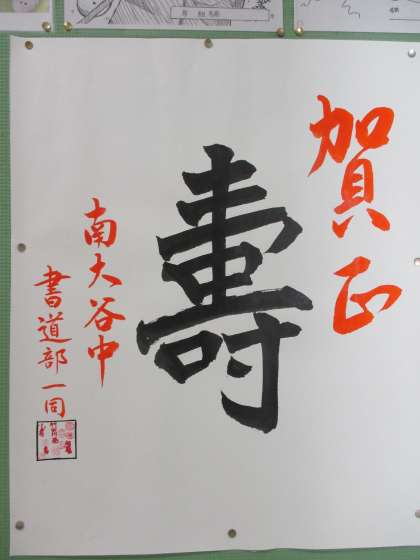 賀正
壽
南大谷中
書道部一同